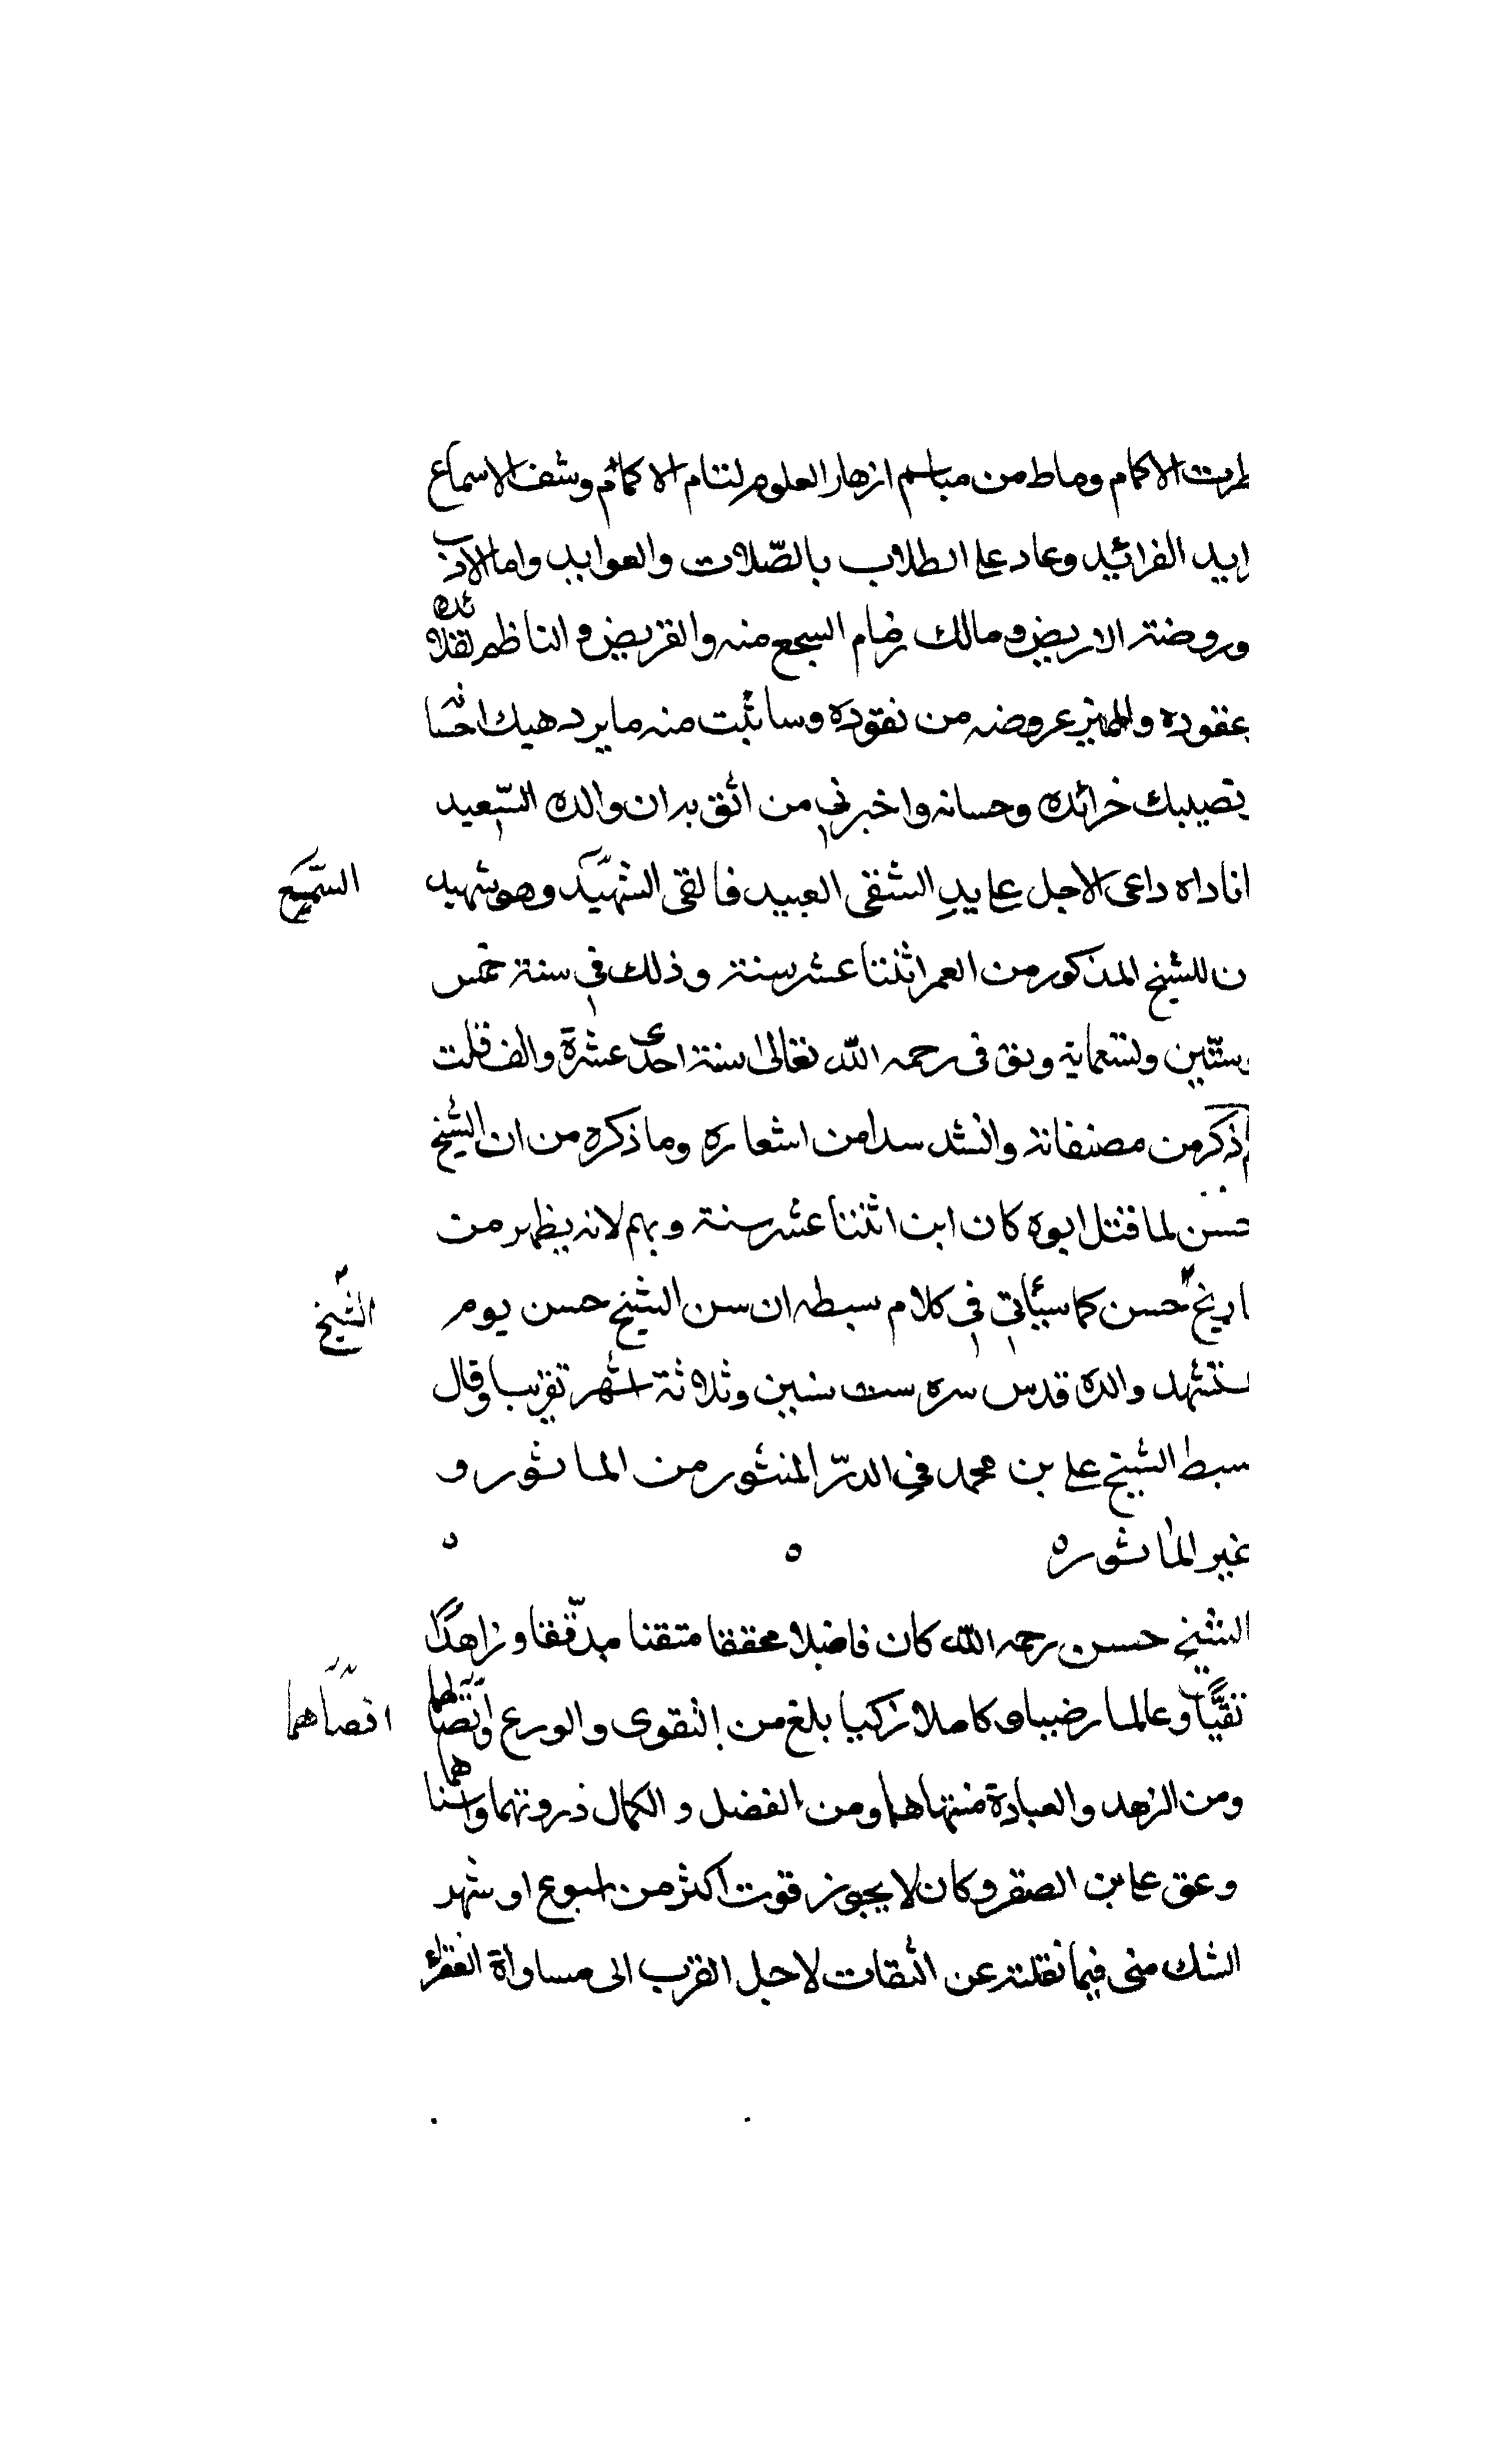 طرت الاكمام وماط من مباسم ازهار العلوم لثام الاكمام وشف الاسماع
ايد الفرائيد وعاد على الطلاب بالصّلات والعوايد واما الادب
وروضته الاريض ومالك زمام السجع منه والقريض والناظم لقلائده
عقوده والمميز عروضه من نقوده وساثبت منه ما يزدهيك احسانه
تصيبك خرائده وحسانه واخبرني من اثق به ان والده السّعيد
اناداه داعى الاجل على يد الشقى العبيد فالقى السّمع وهو شهيد
السّميع
ن للشيخ المذكور من العمر اثنتا عشر سنة وذلك في سنة خمس
وستّين وتسعماية وتوفى رحمه اللّه تعالى سنة احدى عشرة والف قلت
ذكر من مصنفاته وانشد سدا من اشعاره وما ذكره من ان الشيخ
حسن لما قتل ابوه كان ابن اثنتا عشر سنة وبهم لانه يظهر من
اريخ حسن كما سيئاتي في كلام سبطه ان سن الشيخ حسن يوم
الشّيخ
ستشهد والده قدس سره ست سنين وثلاثة اشهر تقريبا وقال
سبط الشيخ على بن محمد في الدرّ المنثور من الماثور و
غير الماثوره
الشيخ حسن رحمه اللّه كان فاضلا محققا متقنا مدقّقا وزاهدًا
تقيًّا وعالما رضيا وكاملا زكيا بلغ من التقوى والورع اقصاهما
اقصاهما
ومن الزهد والعبادة منتهاهما ومن الفضل والكمال ذروتهما واسناهما
وعق على بن الصقر وكان لا يجوز قوت اكثر من اسبوع او شهر
الشك منى فيما نقلته عن الثقات لاجل القرب الى مساواة الفقراء